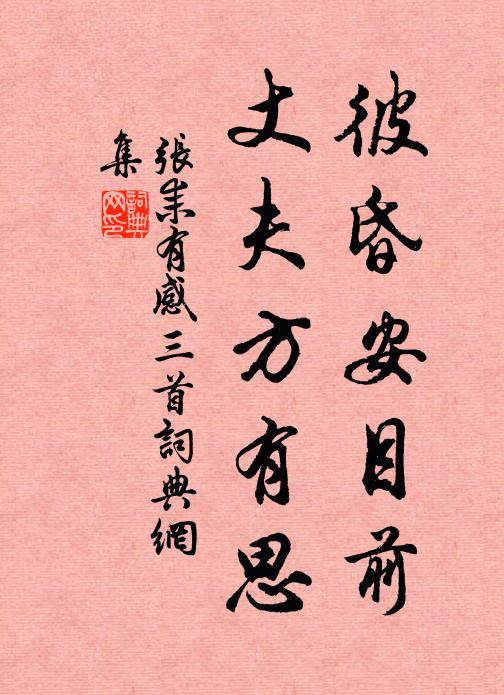 彼昏安目前
丈夫方有思
張耒有感三首詞典網
集
詞典
网印